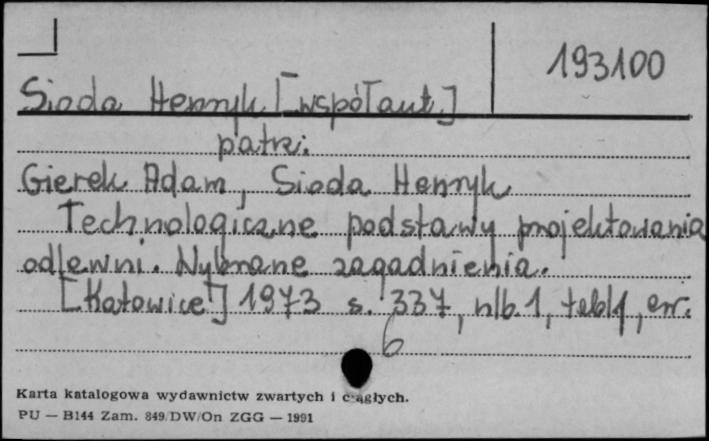 193100
Sioda Henryk [współaut.]
patrz:
Gierek Adam, Sioda Henryk
Technologiczne podstawy projektowania
odlewni. Wybrane zagadnienia.
[Katowice] 1973 s. 337, nlb. 1, tabl 1, err.
6
Karta katalogowa wydawnictw zwartych i ciągłych.
PU — B144 Zam. 849/DW/On ZGG — 1991